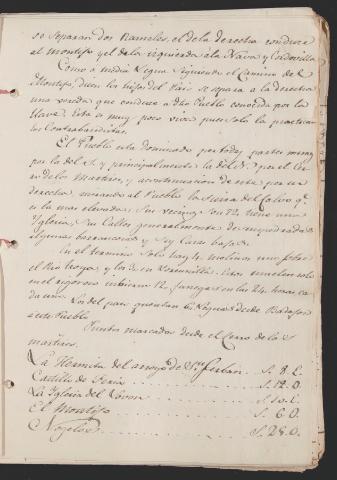 se separan dos Ramales, el de la derecha conduce
al Montijo, y el de la izquierda a la Nava y Cordovilla
Como a media Legua siguiendo el Camino de
Montijo, dicen los hijos del Pais se separa a la derecha
una vereda que conduce a dho Pueblo conocida por la
Llave. esta es muy poco viva pues solo la practican
los Contrabandistas.
El Pueblo esta dominado por todas partes menos
por la del S. y principalmente la del N. por el Cer
ro de la Martires, y a continuacion de este por su
derecha, mirando al Pueblo la Sierra del Calvo q.e
es la mas elevada. Son vecinos 72, tiene una
Iglesia, sus Calles generalmente de empedrado
algunas barrancosas y sus Casas bajas.
En el termino solo hay 4 molinos uno sobre
el Rio y los 3 en estos muelen solo
en el rigoroso invierno 12 fanegas en las 24 horas ca
da uno. Los del pais cuentan 6 Leguas desde Badajoz
a este Pueblo
Puntos marcados desde el Cerro de los
martires.
La Hermita del arroyo de Sn . . . S. 8. E.
Castillo de Feria . . . S. 12. O.
La Iglesia del . . . S. 10. E.
El Montijo . . . S. 6. O.
. . . S. 28. O.